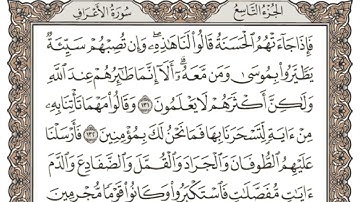 الجزء التاسع سورة الأعراف
فَإِذَا جَاءَتْهُمُ الْحَسَنَةُ قَالُوا لَنَا هَٰذِهِ وَإِن تُصِبْهُمْ سَيِّئَةٌ
يَطَّيَّرُوا بِمُوسَىٰ وَمَن مَّعَهُ أَلَا إِنَّمَا طَائِرُهُمْ عِندَ اللَّهِ
وَلَٰكِنَّ أَكْثَرَهُمْ لَا يَعْلَمُونَ ١٣١ وَقَالُوا مَهْمَا تَأْتِنَا بِهِ
مِنْ ءَايَةٍ لِّتَسْحَرَنَا بِهَا فَمَا نَحْنُ لَكَ بِمُؤْمِنِينَ ١٣٢ فَأَرْسَلْنَا
عَلَيْهِمُ الطُّوفَانَ وَالْجَرَادَ وَالْقُمَّلَ وَالضَّفَادِعَ وَالدَّمَ
ءَايَاتٍ مُّفَصَّلَاتٍ فَاسْتَكْبَرُوا وَكَانُوا قَوْمًا مُّجْرِمِينَ